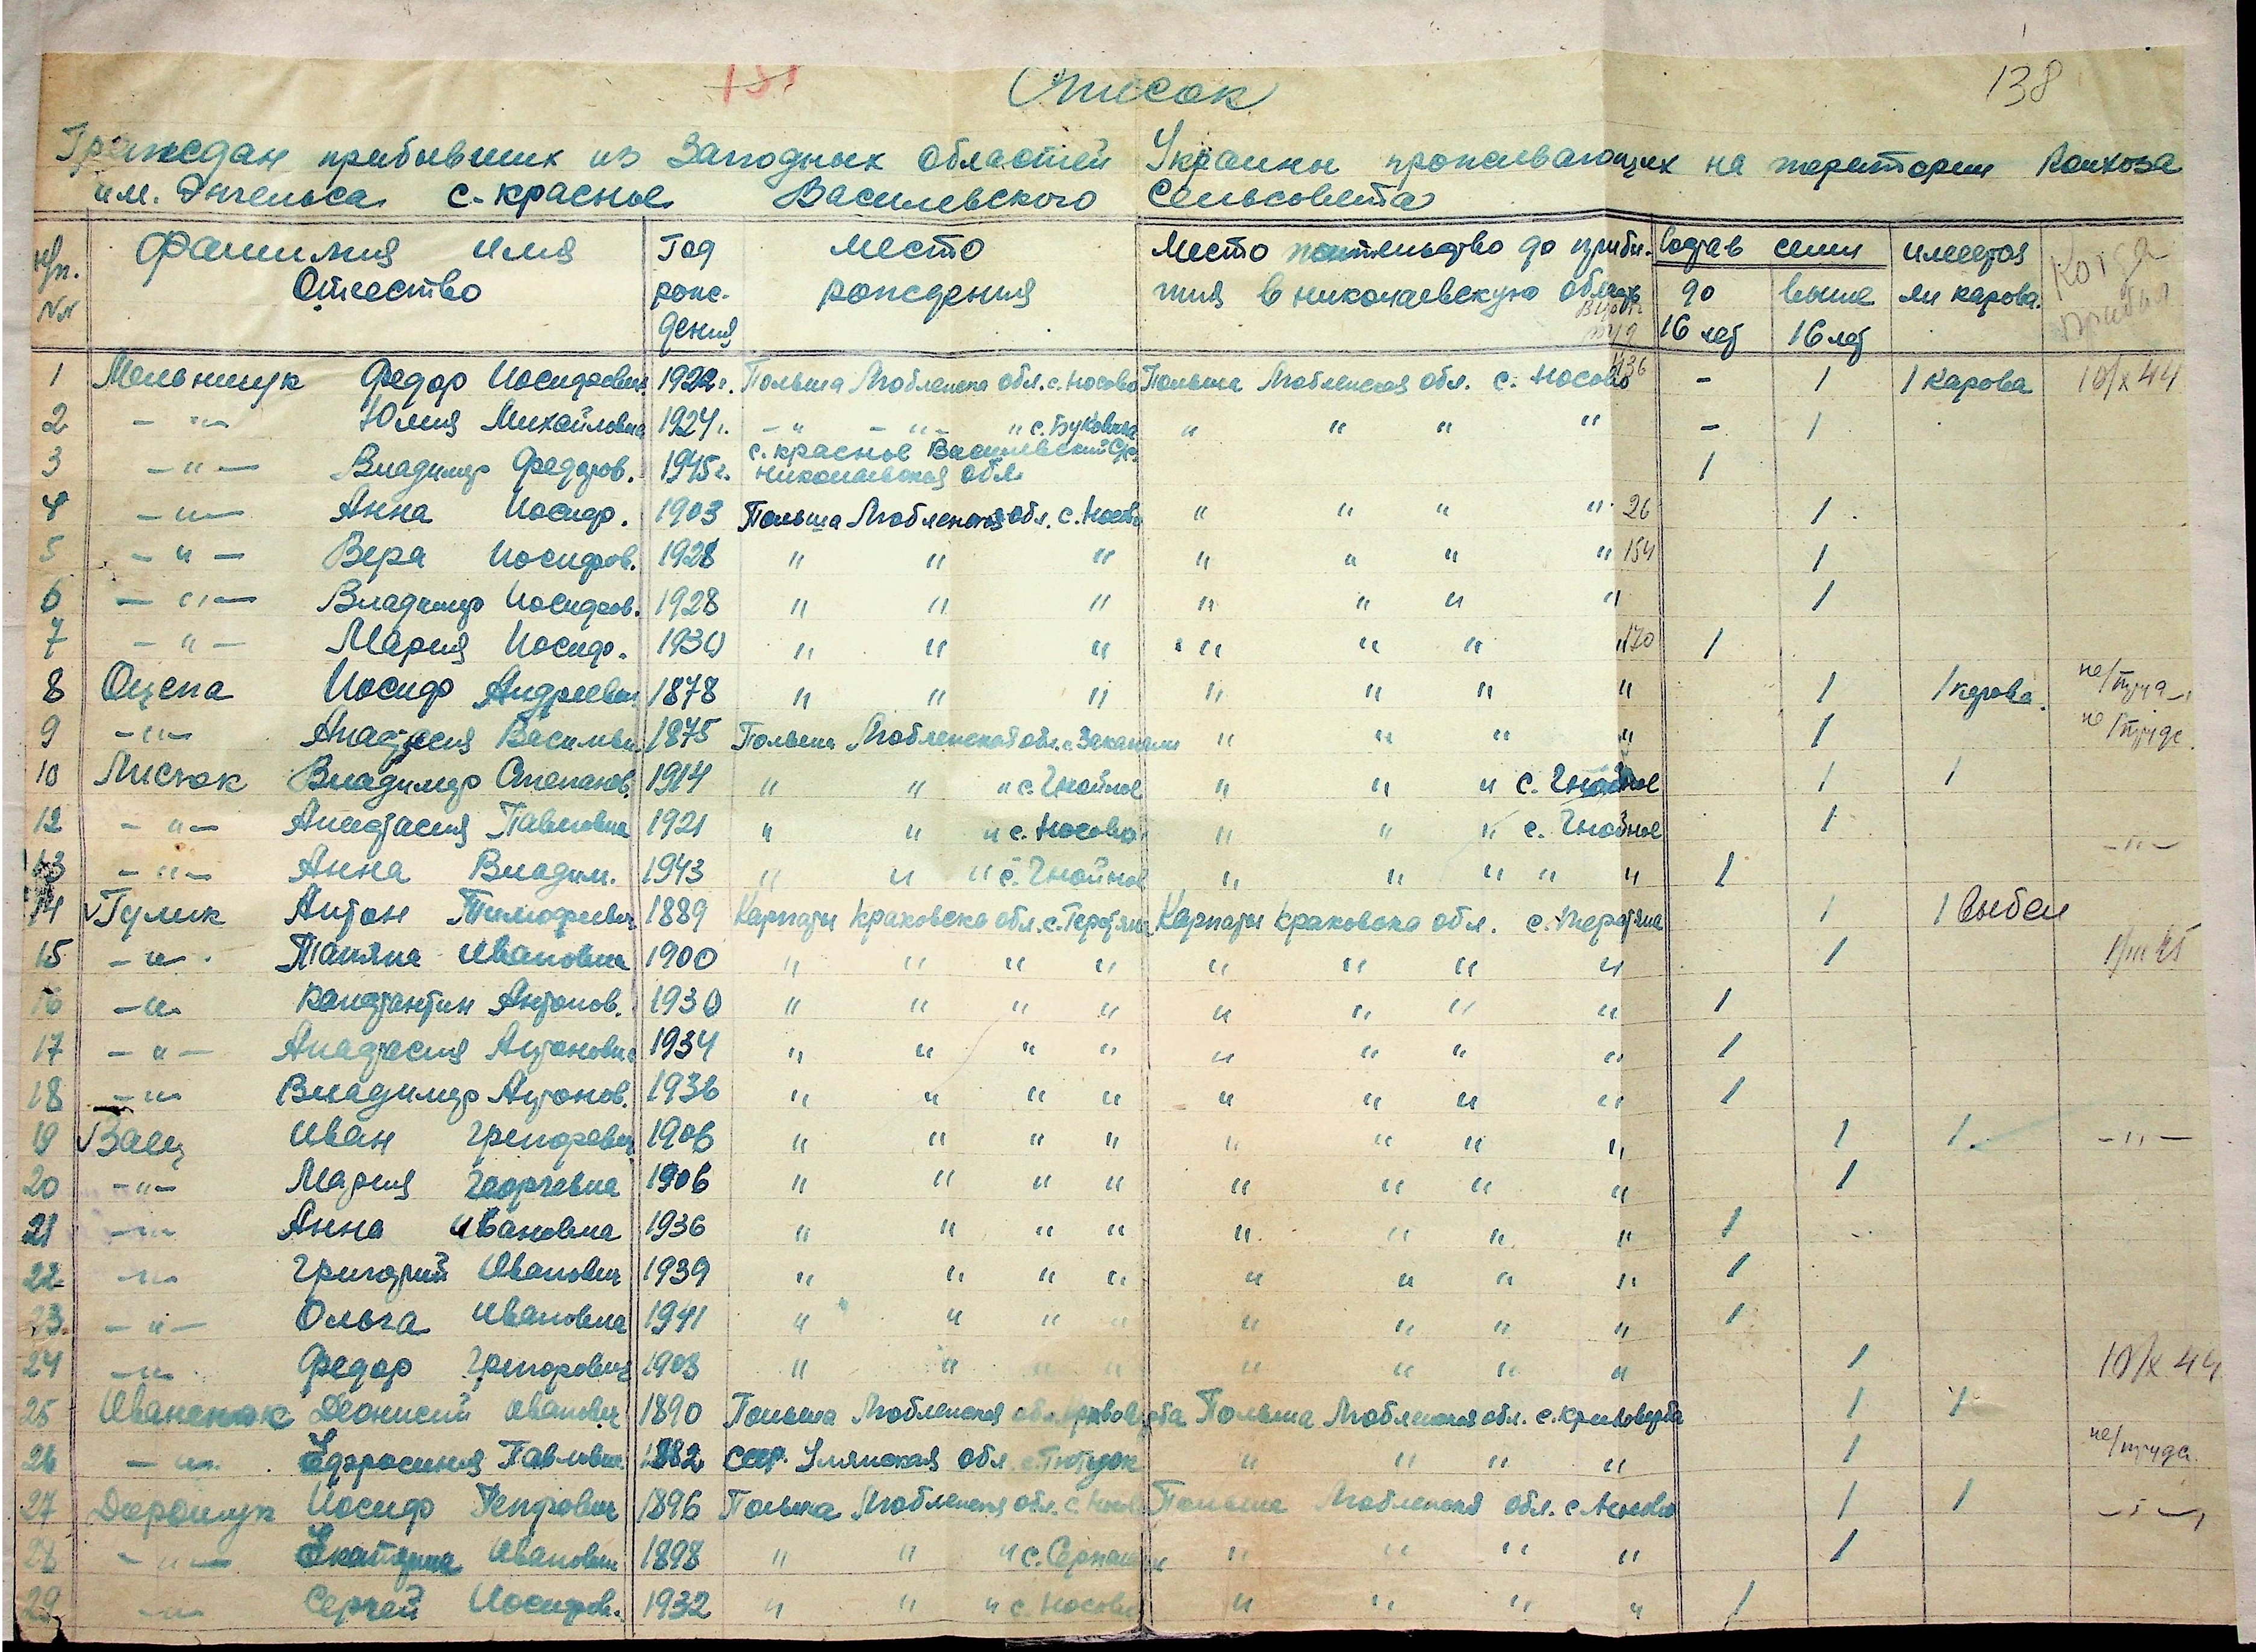 138
Список
Граждан прибывших из Западных областей Украины проживающих на територии Колхоза
им. Энгельса с. Красное Василевского Сельсовета
н/п. №№ Фамилия Имя Отчество Год рождения Место рождения Место жительство до прибытия в николаевскую область Состав семи до 16 лет выше 16 лет имеется ли карова. Когда прибыл
1 Мельничук Федор Иосифович 1922г. Польша Любленска обл. с. Носово Польша Любленская обл. с. Носово 136 - 1 1 карова 10/X 44
2 -"- Юлия Михайловна 1924г. -"- -"- " с. Буковичи " " " " - 1
3 -"- Владимир Федоров. 1945г. с. Красное Василевский С/с. николаевская обл. 1
4 -"- Анна Иосиф. 1903 Польша Любленская обл. с. Носово " " " " 26 1
5 -"- Вера Иосифов. 1928 " " " " " " " 154 1
6 -"- Владимир Иосифов. 1928 " " " " " " " 1
7 -"- Мария Иосиф. 1930 " " " " " " " 170 1
8 Оцепа Иосиф Андреевич 1878 " " " " " " " 1 1 карова. не/труд
9 -"- Анастасия Васильев 1875 Польша Любленская обл. с. " " " " 1 не/трудс.
10 Листюк Владимир Степанов. 1914 " " " с. Гнойное " " " с. Гнойное 1 1
12 -"- Анастасия Павловна 1921 " " " с. Носово " " " с. Гнойное 1 -"-
13 -"- Анна Владим. 1943 " " " с. Гнойное " " " " " 1
14 Гулик Антон Тимофеевич 1889 Карпаты Краковска обл. с. Карпаты Краковска обл. с. 1 1 выбел
15 -"- Татяна Ивановна 1900 " " " " " " " " 1
16 -"- Констянтин Антонов. 1930 " " " " " " " " 1
17 -"- Анастасия Антоновна 1934 " " " " " " " " 1
18 -"- Владимир Антонов. 1936 " " " " " " " " 1
19 Ваец Иван Григоревич 1906 " " " " " " " " 1 1 -"-
20 -"- Мария Георгевна 1906 " " " " " " " " 1
21 -"- Анна Ивановна 1936 " " " " " " " " 1
22 -"- Григорий Иванович 1939 " " " " " " " " 1
23 -"- Ольга Ивановна 1941 " " " " " " " " 1
24 -"- Федор Григорович 1903 " " " " " " " " 1 10/X 44
25 Иваненюк Деонисий Иванович 1890 Польша Люблинская обл. Кривоверба Польша Люблинская обл. с. Кривоверба 1 1
26 -"- Ефросиния Павловн. 1882 СССР. обл. " " " " 1 не/трудс.
27 Дарошук Иосиф Петрович 1896 Польша Люблинская обл. с. Носово Польша Люблинская обл. с. Носово 1 1 -"-
28 -"- Екатирина Ивановн 1898 " " " с. " " " " 1
29 -"- Сергей Иосифов. 1932 " " " с. Носово " " " " 1